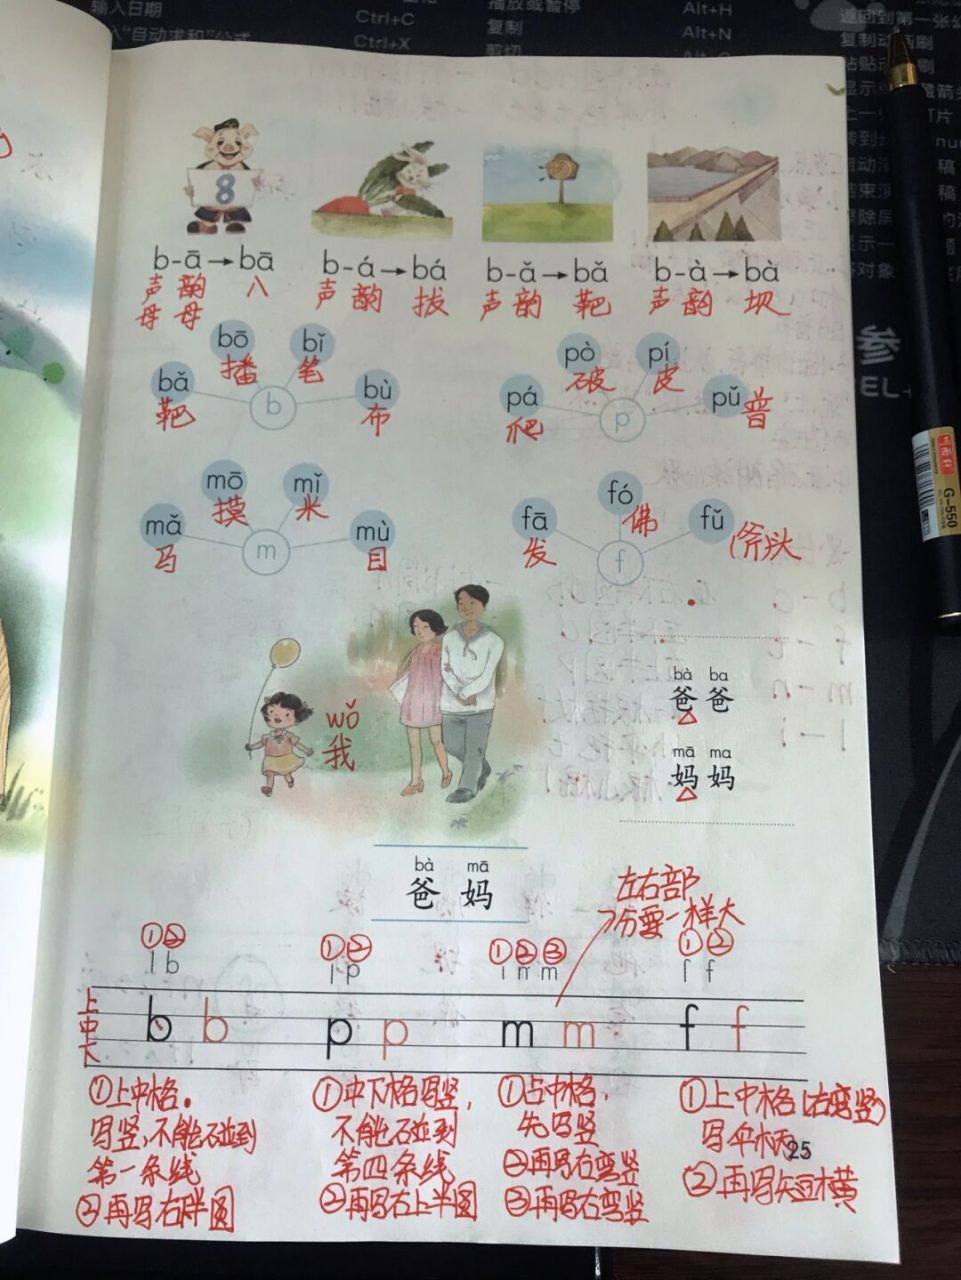 输入日期
Ctrl+C
Ctrl+X
播放或暂停
复制
剪切
Alt+H
Alt+N
8
b-ā→bā
b-á→bá
b-ǎ→bǎ
b-à→bà
声 韵 八
母 母
声 韵 拔
声 韵 靶
声 韵 坝
bǎ bō bǐ bù
靶 播 笔 布
b
pá pò pí pǔ
爬 破 皮 普
p
mǎ mō mǐ mù
马 摸 米 目
m
fā fó fǔ
发 佛 (斧)头
f
wǒ
我
bà ba
爸 爸
mā ma
妈 妈
bà mā
爸 妈
左右部
分要一样大
① ②
l b
① ②
l p
① ② ③
ı n m
① ②
ſ f
上
中
下
b b p p m m f f
①上中格。
写竖,不能碰到
第一条线
②再写右半圆
①中下格写竖,
不能碰到
第四条线
②再写右上半圆
①占中格,
先写竖
②再写右弯竖
③再写右弯竖
①上中格(右弯竖)
写伞柄
②再写短横
25
参
G-550